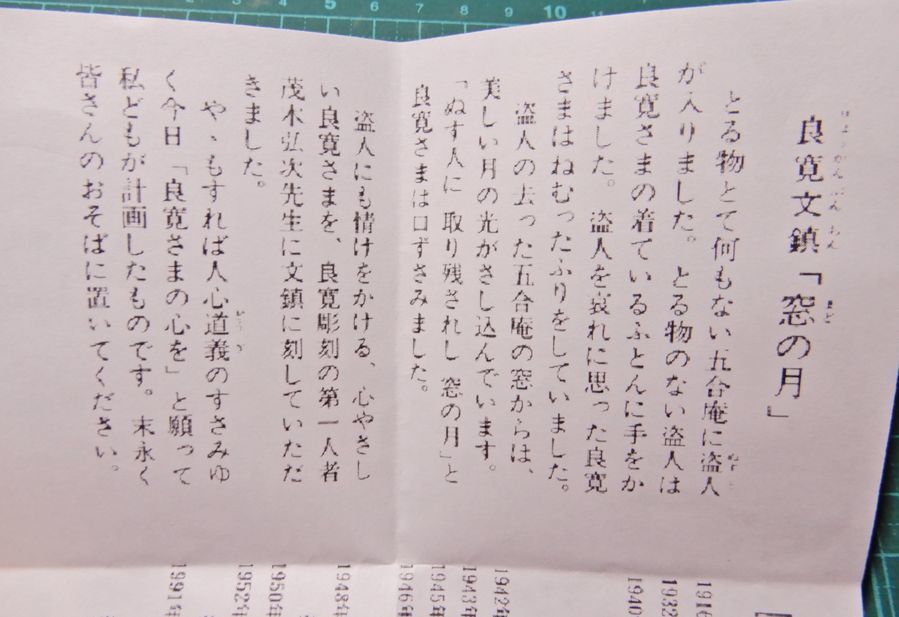 良寛文鎮「窓の月」
とる物とて何もない五合庵に盗人
が入りました。とる物のない盗人は
良寛さまの着ているふとんに手をか
けました。盗人を哀れに思った良寛
さまはねむったふりをしていました。
盗人の去った五合庵の窓からは、
美しい月の光がさし込んでいます。
「ぬす人に 取り残されし 窓の月」と
良寛さまは口ずさみました。
盗人にも情けをかける、心やさし
い良寛さまを、良寛彫刻の第一人者
茂木弘次先生に文鎮に刻していただ
きました。
やゝもすれば人心道義のすさみゆ
く今日「良寛さまの心を」と願って
私どもが計画したものです。末永く
皆さんのおそばに置いてください。
1916
1932
1940
1942年
1943年
1945年
1946年
1948年
1950年
1952年
1991年
5 6 7 8 9 10 11